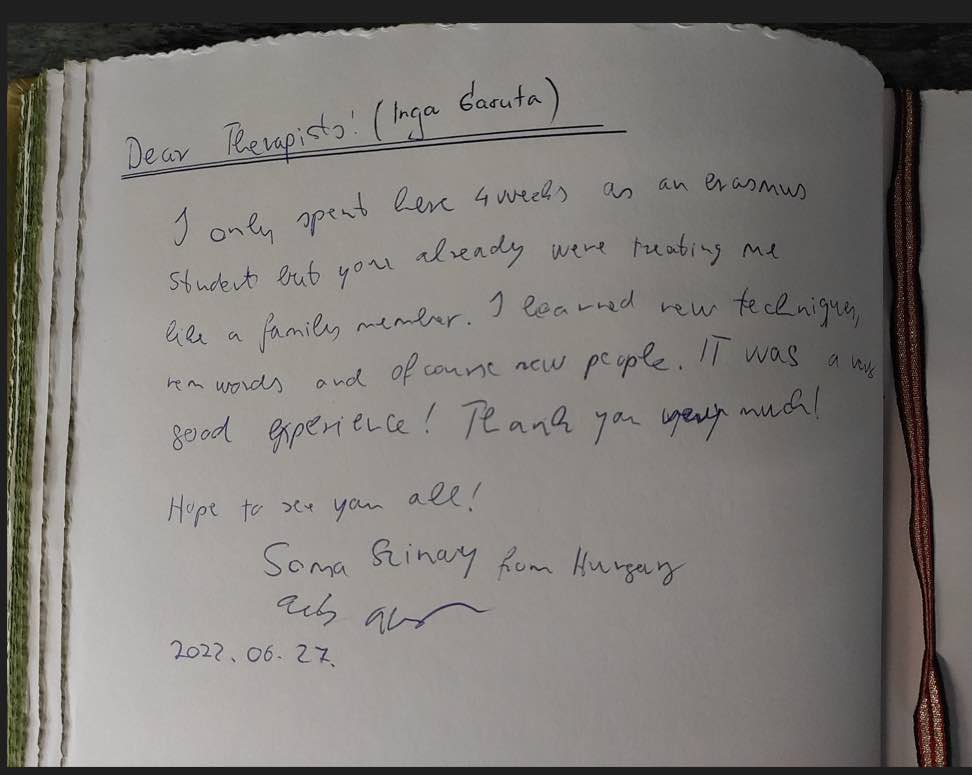 Dear Therapists! (Inga Garuta)
I only spent here 4 weeks as an erasmus
student but you already were treating me
like a family member. I learned new techniques,
new words and of course new people. IT was a very
good experience! Thank you very much!
Hope to see you all!
Soma Szinay from Hungary
2022. 06. 27.